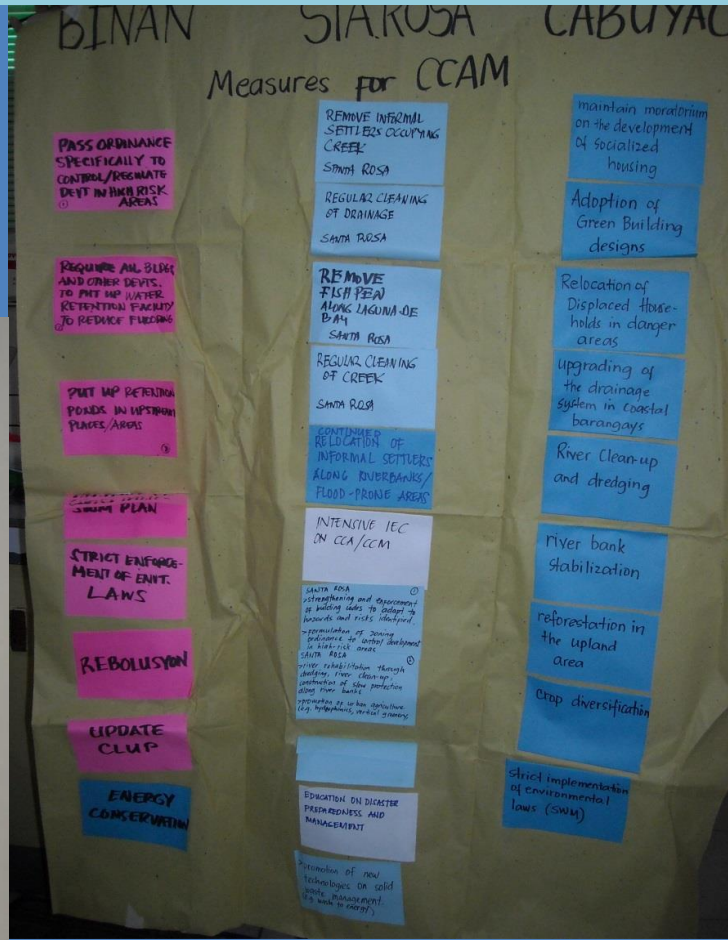 BINAN
STA.ROSA
CABUYAO
Measures for CCAM
PASS ORDINANCE
SPECIFICALLY TO
CONTROL/REGULATE
DEVT IN HIGH RISK
AREAS
REQUIRE ALL BLDGS
AND OTHER DEVTS.
TO PUT UP WATER
RETENTION FACILITY
TO REDUCE FLOODING
PUT UP RETENTION
PONDS IN UPSTREAM
PLACES/AREAS
SWM PLAN
STRICT ENFORCE-
MENT OF ENVT.
LAWS
REBOLUSYON
UPDATE
CLUP
ENERGY
CONSERVATION
REMOVE INFORMAL
SETTLERS OCCUPYING
CREEK
SANTA ROSA
REGULAR CLEANING
OF DRAINAGE
SANTA ROSA
REMOVE
FISH PEN
ALONG LAGUNA DE
BAY
SANTA ROSA
REGULAR CLEANING
OF CREEK
SANTA ROSA
CONTINUED
RELOCATION OF
INFORMAL SETTLERS
ALONG RIVERBANKS/
FLOOD-PRONE AREAS
INTENSIVE IEC
ON CCA/CCM
SANTA ROSA
>strengthening and enforcement
of building codes to adapt to
hazards and risks identified.
>formulation of zoning
ordinance to control development
in high-risk areas
SANTA ROSA
>river rehabilitation through
dredging, river clean-up,
construction of slope protection
along river banks
>promotion of urban agriculture
(e.g. hydrophonics, vertical greening
EDUCATION ON DISASTER
PREPAREDNESS AND
MANAGEMENT
>promotion of new
technologies on solid
waste management
(e.g. waste to energy)
maintain moratorium
on the development
of socialized
housing
Adoption of
Green Building
designs
Relocation of
Displaced House-
holds in danger
areas
upgrading of
the drainage
system in coastal
barangays
River Clean-up
and dredging
river bank
stabilization
reforestation in
the upland
area
crop diversification
strict implementation
of environmental
laws (SWM)